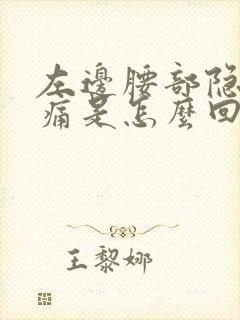 左邊腰部隐
痛是怎麼回
王黎娜